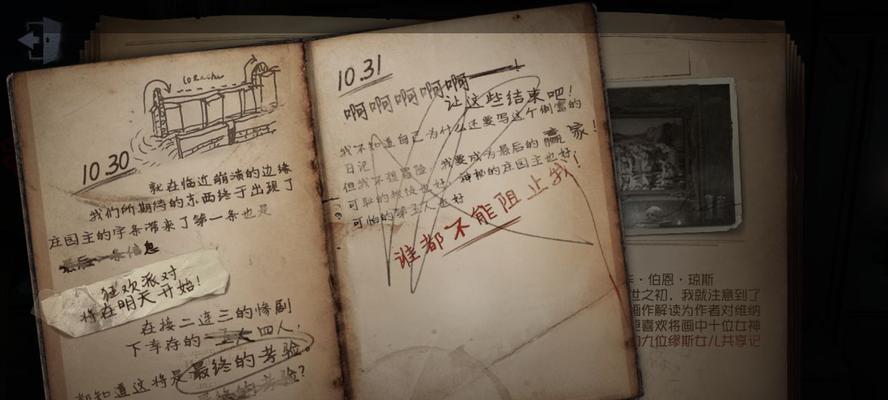 10.30
就在临近崩溃的边缘
我们所期待的东西终于出现了
庄园主的字条带来了第一条也是
最后一条信息
狂欢派对
将在明天开始！
在接二连三的惨剧
下幸存的四人，
都知道这将是最终的考验。
10.31
啊啊啊啊啊——！
让这些结束吧！
我不知道自己为什么还要写这个倒霉的
日记
但我不想冒险，我要成为最后的赢家！
可耻的叛徒也好 神秘的庄园主也好
可怕的第五人也好
谁都不能阻止我！
·伯恩·琼斯
世之初，我就注意到了
画作解读为作者对维纳
更喜欢将画中十位女神
九位缪斯女儿共享记